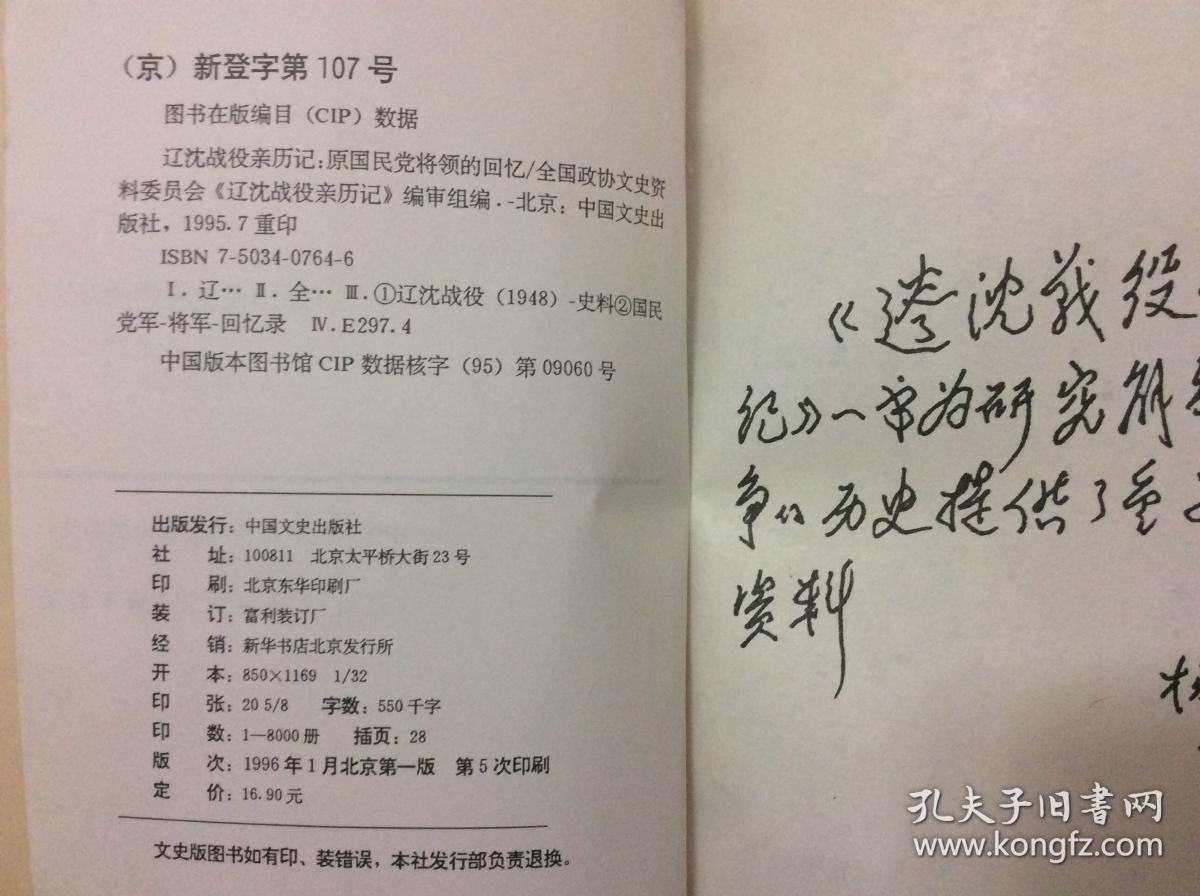 （京）新登字第 107 号
图书在版编目（CIP）数据
辽沈战役亲历记：原国民党将领的回忆/全国政协文史资
料委员会《辽沈战役亲历记》编审组编．-北京：中国文史出
版社，1995.7 重印
ISBN 7-5034-0764-6
Ⅰ．辽… Ⅱ．全… Ⅲ．①辽沈战役（1948）-史料②国民
党军-将军-回忆录 Ⅳ．E297.4
中国版本图书馆 CIP 数据核字（95）第 09060 号
出版发行：中国文史出版社
社 址：100811 北京太平桥大街23号
印 刷：北京东华印刷厂
装 订：富利装订厂
经 销：新华书店北京发行所
开 本：850×1169 1/32
印 张：20 5/8 字数：550千字
印 数：1—8000册 插页：28
版 次：1996年1月北京第一版 第5次印刷
定 价：16.90元
文史版图书如有印、装错误，本社发行部负责退换。
《辽沈战役
纪》一书为研究解
争的历史提供了重
资料
孔夫子旧书网
www.kongfz.com